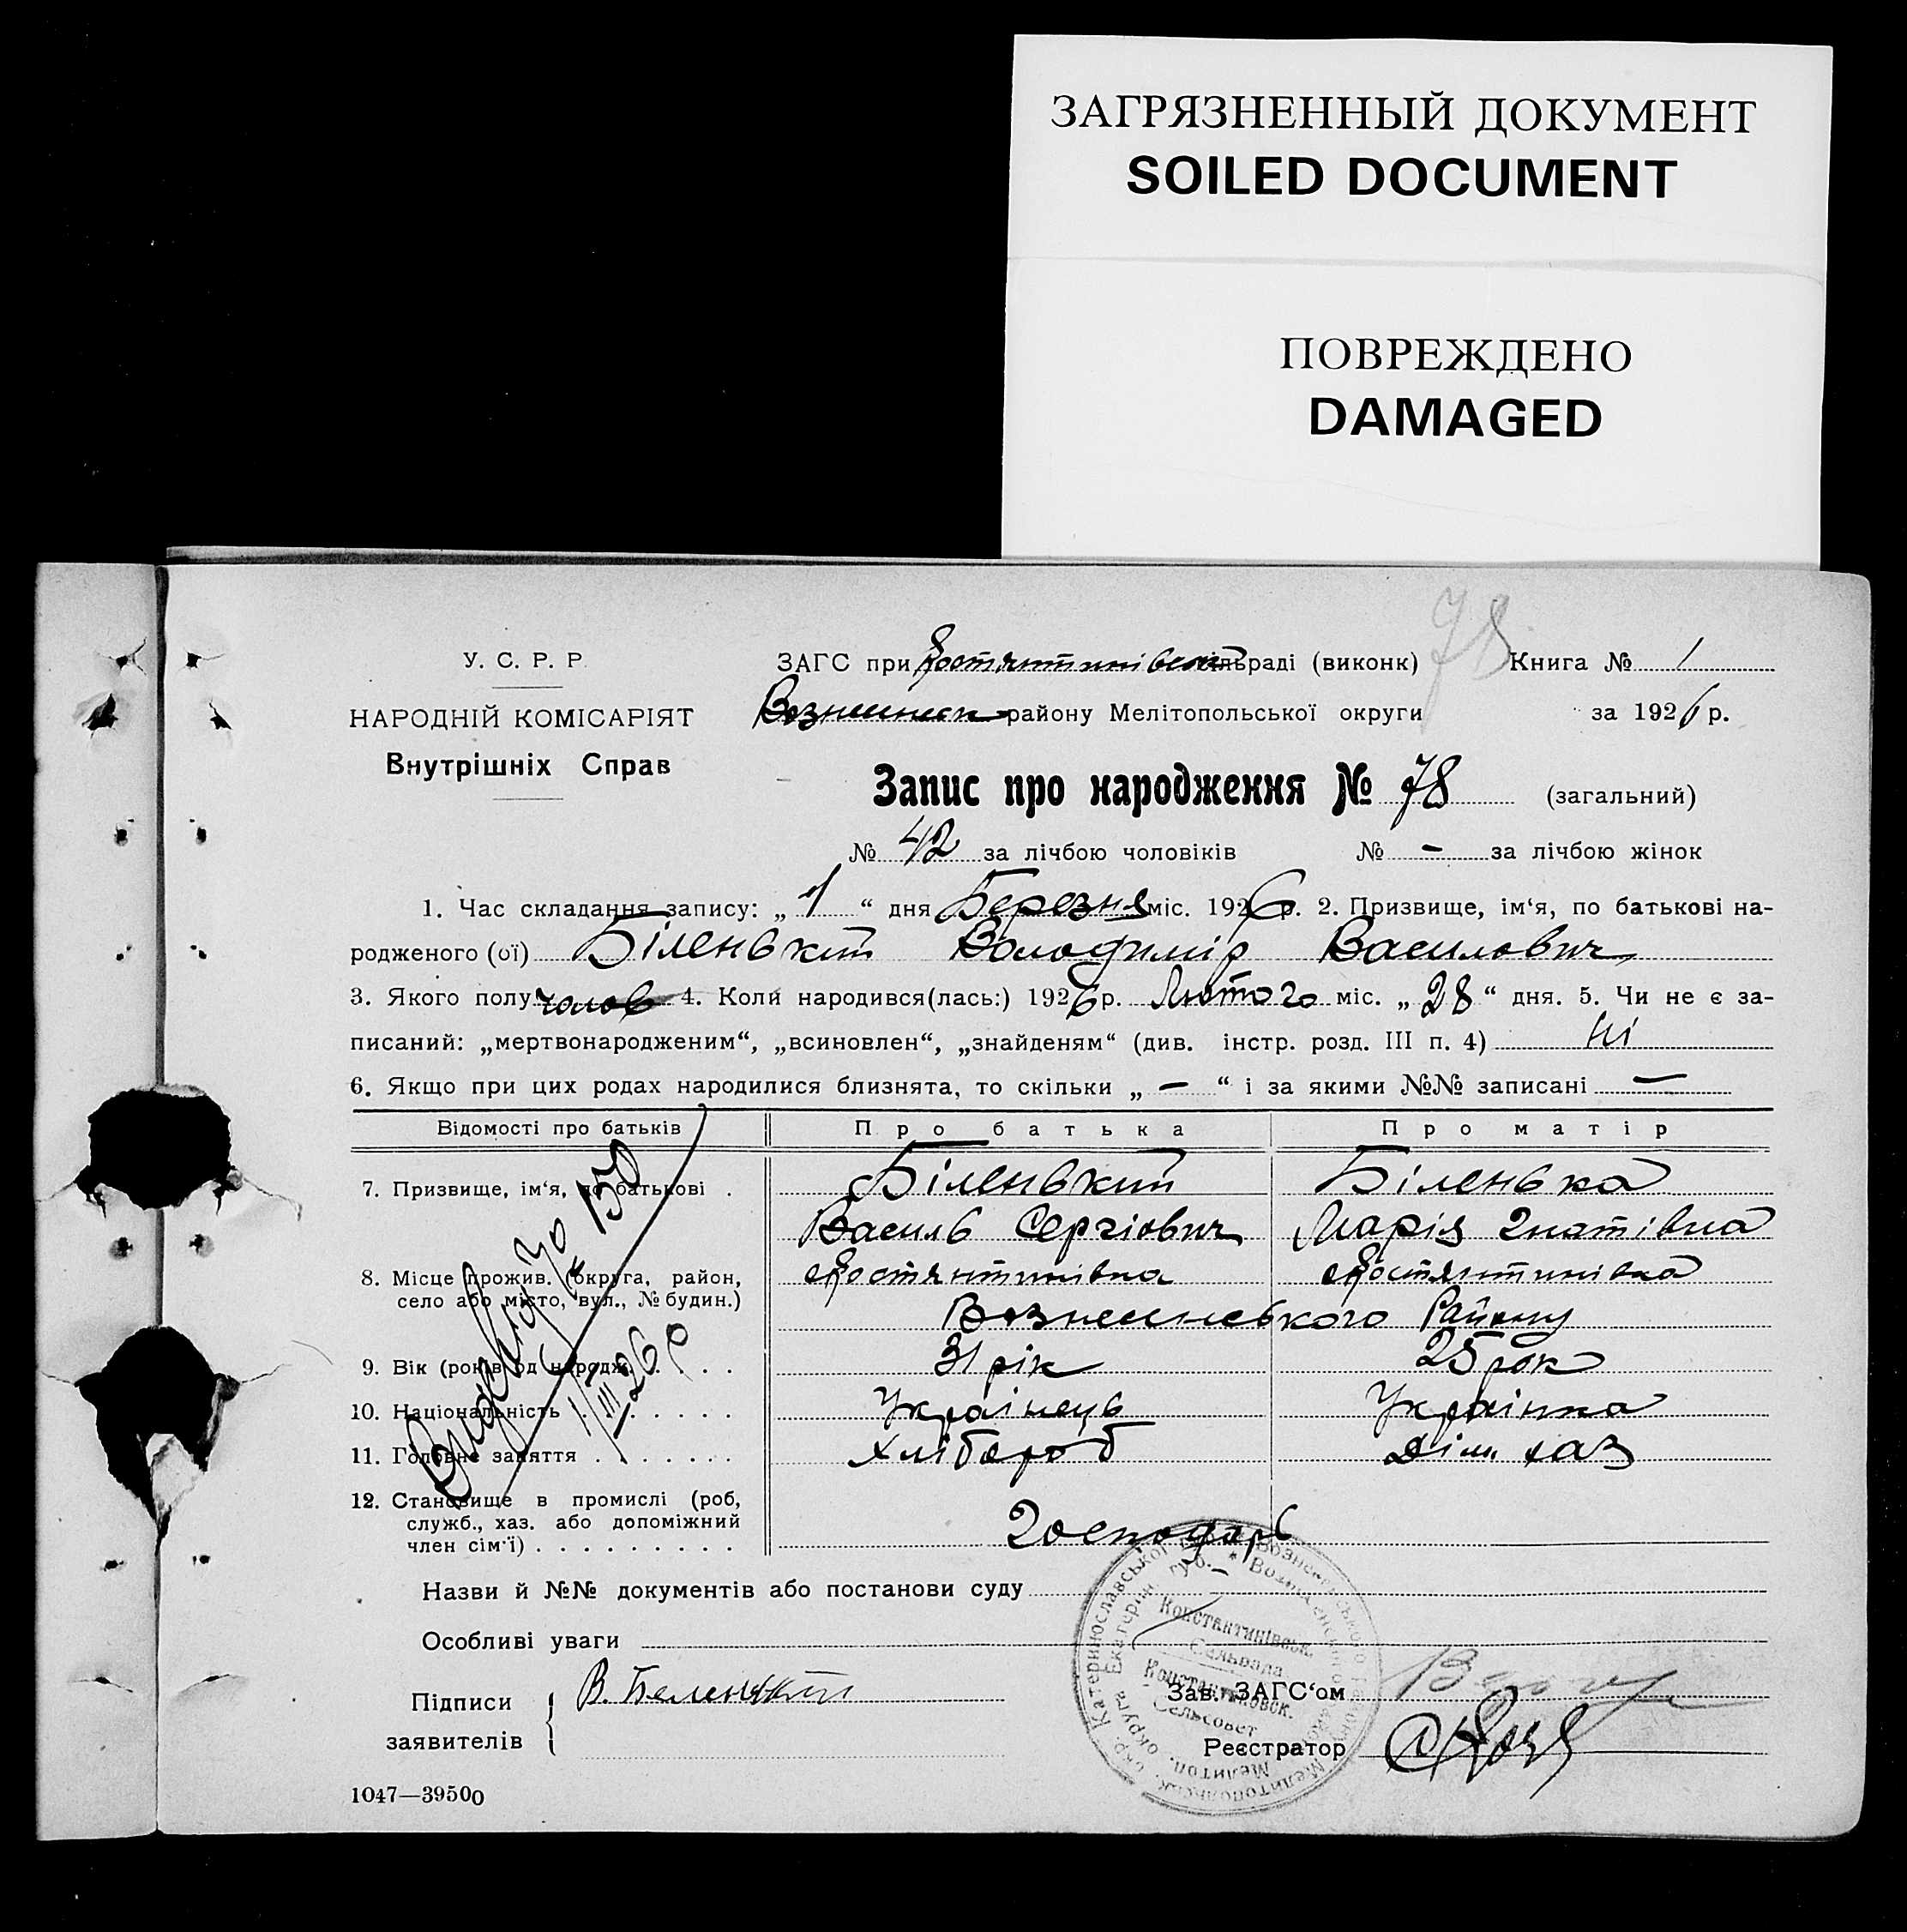 ЗАГРЯЗНЕННЫЙ ДОКУМЕНТ
SOILED DOCUMENT
ПОВРЕЖДЕНО
DAMAGED
78
У. С. Р. Р.
НАРОДНІЙ КОМІСАРІЯТ
Внутрішніх Справ
ЗАГС при Костянтинівській сільраді (виконк) Книга № 1
Вознесенськ району Мелітопольської округи за 1926 р.
Запис про народження № 78 (загальний)
№ 42 за лічбою чоловіків № — за лічбою жінок
1. Час складання запису: „ 1 “ дня Березня міс. 1926 р. 2. Призвище, ім‘я, по батькові на-
родженого (ої) Біленький Володимір Василович
3. Якого полу чолов 4. Коли народився(лась:) 1926 р. Лютого міс. „ 28 “ дня. 5. Чи не є за-
писаний: „мертвонародженим“, „всиновлен“, „знайденям“ (див. інстр. розд. III п. 4) Ні
6. Якщо при цих родах народилися близнята, то скільки „ — “ і за якими №№ записані —
Відомості про батьків Про батька Про матір
7. Призвище, ім‘я, по батькові . Біленький Біленька
Василь Сергіович Марія Гнатівна
8. Місце прожив. (округа, район, Костянтинівка Костянтинівка
село або місто, вул., № будин.) Вознесенського Району
9. Вік (років од народж. . . . . 31 рік 25 рок
10. Національність . . . . . . Українець Українка
11. Головне заняття . . . . . . . Хлібороб Дім. хаз
12. Становище в промислі (роб,
служб., хаз. або допоміжний
член сім‘ї) . . . . . . . . . Господарь
№ 150
1/III-26 р
Назви й №№ документів або постанови суду —
Особливі уваги
Підписи В. Беленький
заявителів
Зав. ЗАГС‘ом
Реєстратор
Константинівськ.
Сельрада
Константиновск.
Сельсовет
1047—39500